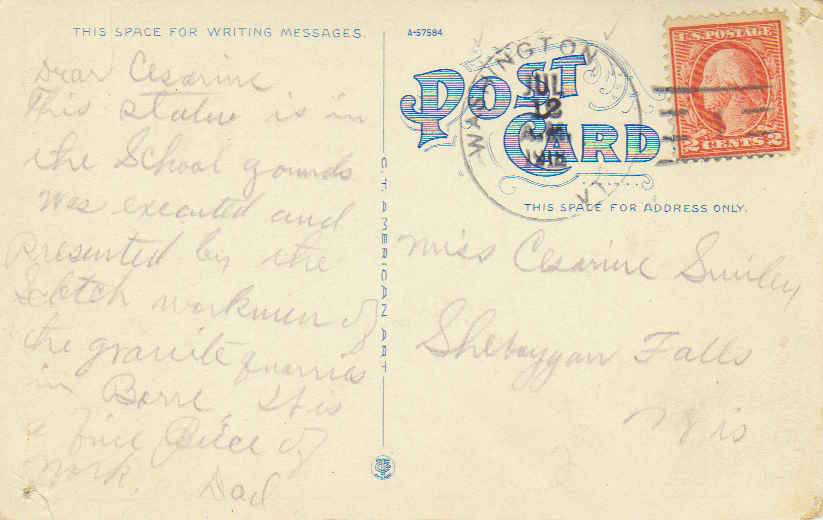 THIS SPACE FOR WRITING MESSAGES.
A-57584
Dear Cesarine
This statue is in
the School gounds
was executed and
presented by the
Scotch workmen of
the granite quarries
in Barre. It is
a fine piece of
work. Dad
C.T. AMERICAN ART
POST CARD
WASHINGTON
JUL
12
VT.
U.S. POSTAGE
2 CENTS 2
THIS SPACE FOR ADDRESS ONLY.
Miss Cesarine Smiley
Sheboygan Falls
Wis